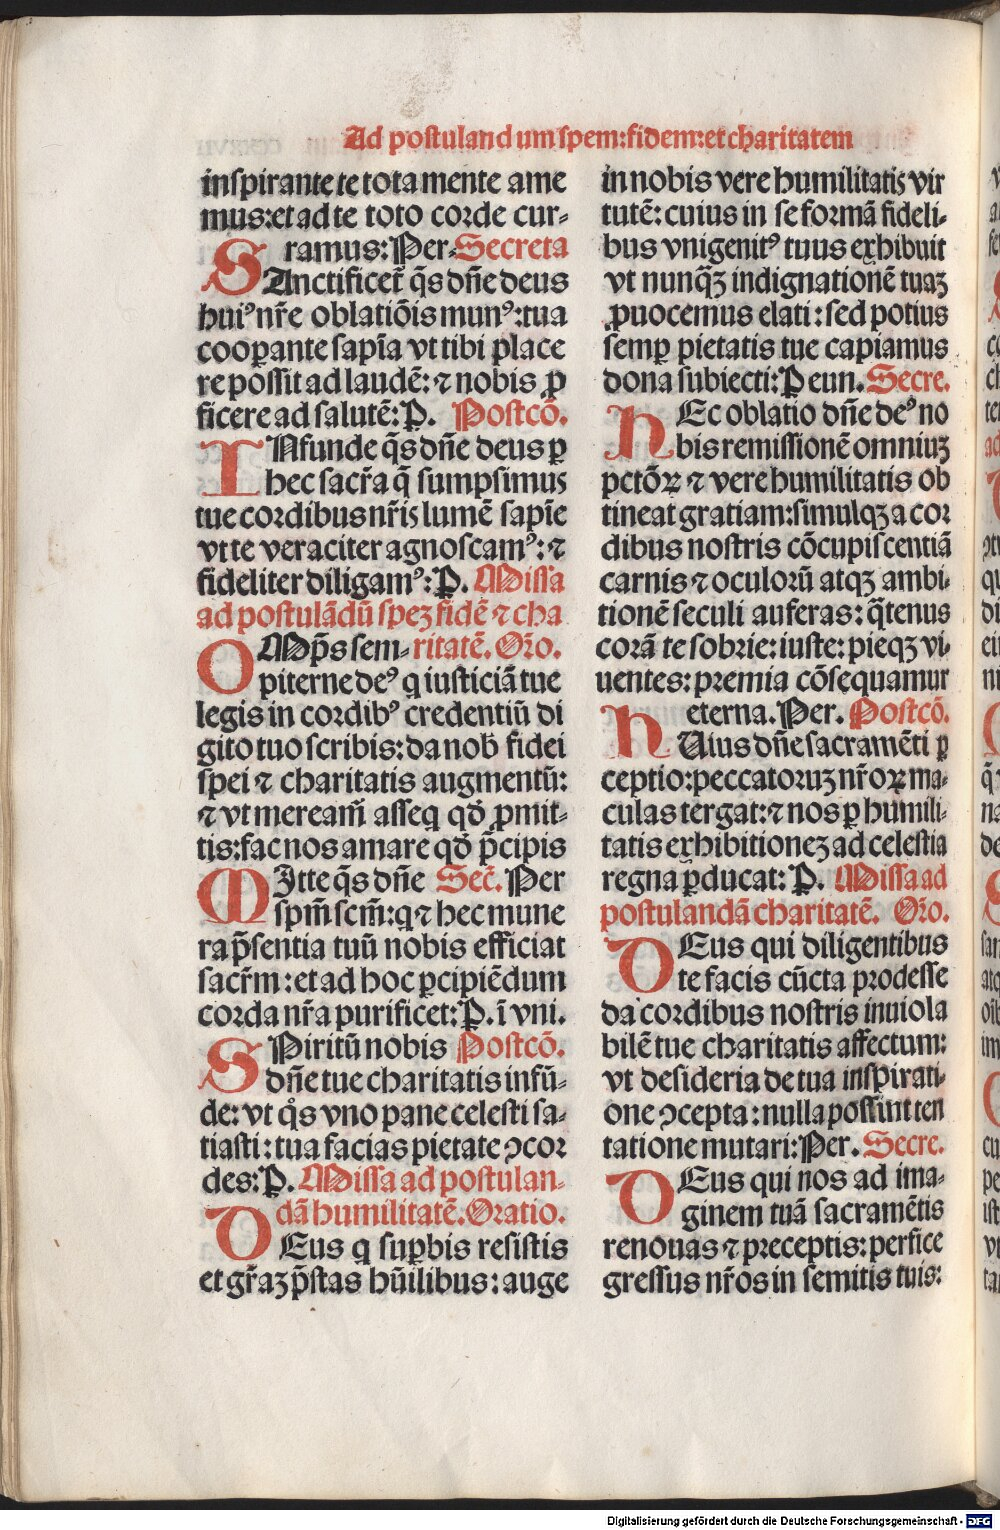 Ad postulandum spem:fidem:et charitatem
inspirante te tota mente ame
mus:et ad te toto corde cur-
ramus: Per- Secreta
SAnctificet̃ q̃s dñe deus
hui⁹ nr̃e oblatiõis mun⁹:tua
cooꝑante sapĩa vt tibi place
re possit ad laudẽ: ⁊ nobis ꝓ
ficere ad salutẽ: P. Postcõ.
INfunde q̃s dñe deus ꝑ
hec sacr̃a q̃ sumpsimus
tue cordibus nr̃is lumẽ sapĩe
vt te veraciter agnoscam⁹: ⁊
fideliter diligam⁹: P. Missa
ad postulãdũ speʒ fidẽ ⁊ cha
OMp̃s sem- ritatẽ. Oro.
piterne de⁹ q iusticiã tue
legis in cordib⁹ credentiũ di
gito tuo scribis: da nob̃ fidei
spei ⁊ charitatis augmentũ:
⁊ vt meream̃ asseq qď ꝓmit-
tis:fac nos amare qď p̃cipis
MItte q̃s dñe Sec̃. Per
spm̃ scm̃: q ⁊ hec mune
ra p̃sentia tuũ nobis efficiat
sacr̃m: et ad hoc ꝑcipiẽdum
corda nr̃a purificet: P. ĩ vni.
SPiritũ nobis Postcõ.
dñe tue charitatis infũ-
de: vt q̊s vno pane celesti sa-
tiasti: tua facias pietate ꝯcor
des: P. Missa ad postulan-
dã humilitatẽ. Oratio.
DEus q suꝑbis resistis
et gr̃aʒ p̃stas hũilibus: auge
in nobis vere humilitatis vir
tutẽ: cuius in se formã fideli-
bus vnigenit⁹ tuus exhibuit
vt nunq̃ʒ indignationẽ tuaʒ
ꝓuocemus elati: sed potius
semꝑ pietatis tue capiamus
dona subiecti: P eun. Secre.
HEc oblatio dñe de⁹ no
bis remissionẽ omniuʒ
pctõꝝ ⁊ vere humilitatis ob
tineat gratiam:simulqʒ a cor
dibus nostris cõcupiscentiã
carnis ⁊ oculorũ atqʒ ambi-
tionẽ seculi auferas: q̃tenus
corã te sobrie: iuste: pieqʒ vi-
uentes: premia cõsequamur
eterna. Per. Postcõ.
HUius dñe sacramẽti ꝑ
ceptio:peccatoruʒ nr̃oꝝ ma-
culas tergat: ⁊ nos ꝑ humili-
tatis exhibitioneʒ ad celestia
regna ꝑducat: P. Missa ad
postulandã charitatẽ. Oro.
DEus qui diligentibus
te facis cũcta prodesse
da cordibus nostris inuiola
bilẽ tue charitatis affectum:
vt desideria de tua inspirati-
one ꝯcepta: nulla possint ten
tatione mutari: Per. Secre.
DEus qui nos ad ima-
ginem tuã sacramẽtis
renouas ⁊ preceptis: perfice
gressus nr̃os in semitis tuis:
Digitalisierung gefördert durch die Deutsche Forschungsgemeinschaft - DFG